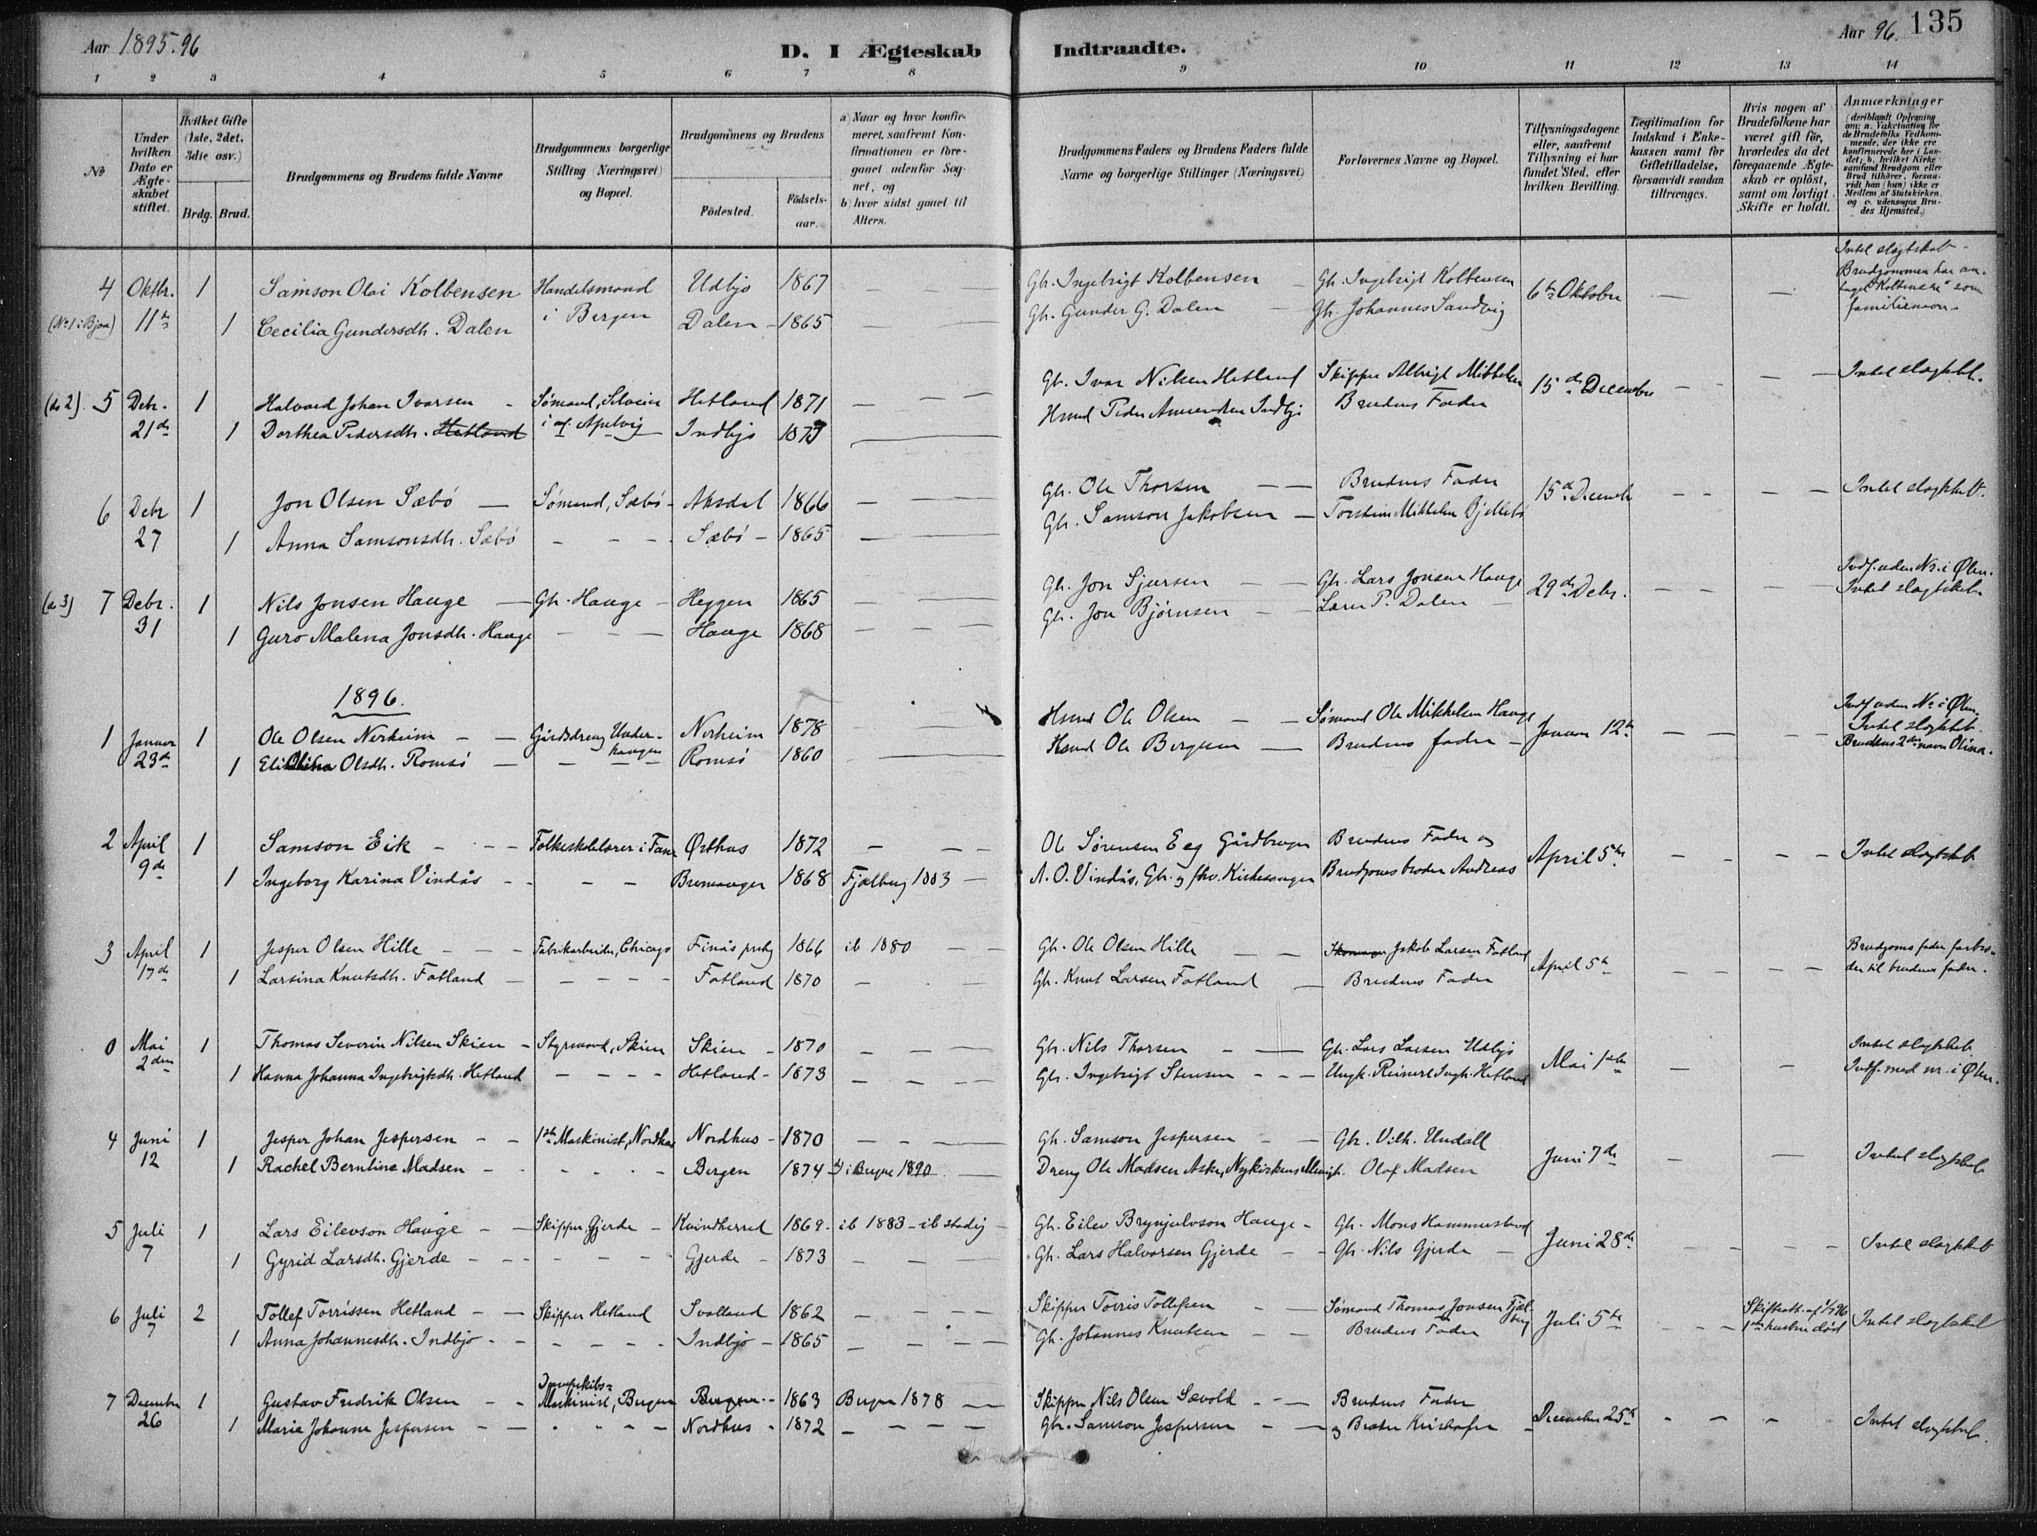 Aar 1895.96
D. I Ægteskab Indtraadte.
Aar 96. 135
1 2 3 4 5 6 7 8 9 10 11 12 13 14
No
Under hvilken Dato er Ægteskabet stiftet.
Hvilket Gifte (1ste, 2det, 3die osv.)
Brdg. Brud.
Brudgommens og Brudens fulde Navne
Brudgommens borgerlige Stilling (Næringsvei) og Bopæl.
Brudgommens og Brudens
Födested.
Födselsaar.
a) Naar og hvor konfirmeret, saafremt Konfirmationen er foregaaet udenfor Sognet, og
b) hvor sidst gaaet til Alters.
Brudgommens Faders og Brudens Faders fulde Navne og borgerlige Stillinger (Næringsvei)
Forlovernes Navne og Bopæl.
Tillysningsdagene eller, saafremt Tillysning ei har fundet Sted, efter hvilken Bevilling.
Legitimation for Indskud i Enkekassen samt for Giftetilladelse, forsaavidt saadan tiltrænges.
Hvis nogen af Brudefolkene har været gift för, hvorledes da det foregaaende Ægteskab er oplöst, samt om lovligt Skifte er holdt.
Anmærkninger
(deriblandt Oplysning om: a. Vakcination for de Brudefolks Vedkommende, der ikke ere konfirmerede her i Landet; b. hvilket Kirkesamfund Brudgom eller Brud tilhörer, forsaavidt han (hun) ikke er Medlem af Statskirken, og c. udensogns Brudes Hjemsted.)
4 Oktbr. 1 Samson Olai Kolbensen Handelsmand Udbjo 1867 Gb. Ingebrigt Kolbensen Gb. Ingebrigt Kolbensen 6te Oktober Intet slegtskab. Brudgommen har antaget "Kolbensen" som familienavn.
(No 1 i Bjoa) 11te 1 Cecilia Gundersdh. Dalen i Bergen Dalen 1865 Gb. Gunder G. Dalen Gb. Johannes Sandvig
(do 2). 5 Debr. 1 Halvard Johan Ivarsen Sømand, Hetland 1871 Gb. Ivar Nilsen Hetland Skipper Albrigt Mikkelsen 15de December Intet slegtskab.
21de 1 Dorthea Pedersdh. Hetland Apelvig Indbjo 1877 Hsmd Peder Amundsen Indbjo Brudens Fader
6 Debr 1 Jon Olsen Sæbö Sømand, Sæbö Aksdal 1866 Gb. Ole Thorsen Brudens Fader 15de Decembr Intet slegtskab.
27 1 Anna Samsonsdh. Sæbö Sæbö 1865 Gb. Samson Jakobsen Torstein Mikkelsen
(do 3) 7 Debr. 1 Nils Jonsen Hauge Gb. Hauge Heggen 1865 Gb. Jon Sjursen Gb. Lars Jonsen Hauge 29de Debr. Indf. uden Nr. i Ølen. Intet slegtskab.
31 1 Guro Malena Jonsdh. Hauge Hauge 1868 Gb. Jon Bjørnsen Lærer P. Dalen
1896.
1 Januar 1 Ole Olsen Nerheim Gårdsdreng Underhaugen Nerheim 1878 Hsmd Ole Olsen Sømand Ole Mikkelsen Hauge Januar 12te Indf. uden Nr. i Ølen. Intet slegtskab. Brudens 2det navn Olina.
23de 1 Eli Olina Olsdh. Romsö Romsö 1860 Hsmd Ole Bergesen Brudens fader
2 April 1 Samson Eik Folkeskolelærer i Fana Ørthus 1872 Ole Sørensen Eeg Gårdbruger Brudens Fader og April 5te Intet slegtskab
9de 1 Ingeborg Karina Vindås Bremanger 1868 Fjelberg 1883 A. O. Vindås, Gb. og fhv. Kirkesanger Brudgoms broder Andreas
3 April 1 Jesper Olsen Hille Fabrikarbeider, Chicago Finås prstg 1866 ib 1880 Gb. Ole Olsen Hille Jakob Larsen Fatland April 5te Brudgoms fader farbroder til brudens fader.
17de 1 Larsina Knutsdh. Fatland Fatland 1870 Gb. Knut Larsen Fatland Brudens Fader
0 Mai 1 Thomas Severin Nilsen Skien Styrmand, Skien Skien 1870 Gb. Nils Thorsen Gb. Lars Larsen Udbjo Mai 1ste Intet slegtskab
2den 1 Hanna Johanna Ingebrigtsdh. Hetland Hetland 1873 Gb. Ingebrigt Stensen Ungk. Reinert Ingb. Hetland Indf. med nr. i Ølen.
4 Juni 1 Jesper Johan Jespersen 1ste Maskinist, Nordhus Nordhus 1870 Gb. Samson Jespersen Gb. Vilh. Undall Juni 7de Intet slegtskab
12 1 Rachel Berntine Madsen Bergen 1874 i Bergen 1890 Dreng Ole Madsen Aske, Nykirkens Menigh. Olaf Madsen
5 Juli 1 Lars Eilevson Hauge Skipper, Gjerde Kvindherred 1869 ib 1883 - ib stadig Gb. Eilev Brynjulvson Hauge Gb. Mons Hammersland Juni 28de Intet slegtskab
7 1 Gyrid Larsdh. Gjerde Gjerde 1873 Gb. Lars Halvorsen Gjerde Gb. Nils Gjerde
6 Juli 2 Tollef Torrissen Hetland Skipper Hetland Svolland 1862 Skipper Torris Tollefsen Sømand Thomas Jonsen Fjelberg Juli 5te Skifteatt. af 1/7 96 1ste hustru död Intet slegtskab
7 1 Anna Johannesdh. Indbjo Indbjo 1865 Gb. Johannes Knutsen Brudens Fader
7 December 1 Gustav Fredrik Olsen Dampskibs-Maskinist, Bergen Bergen 1863 Bergen 1878 Skipper Nils Olsen Sævold Brudens Fader December 25de Intet slegtskab.
26 1 Marie Johanne Jespersen Nordhus 1872 Gb. Samson Jespersen og Broder Kristofer